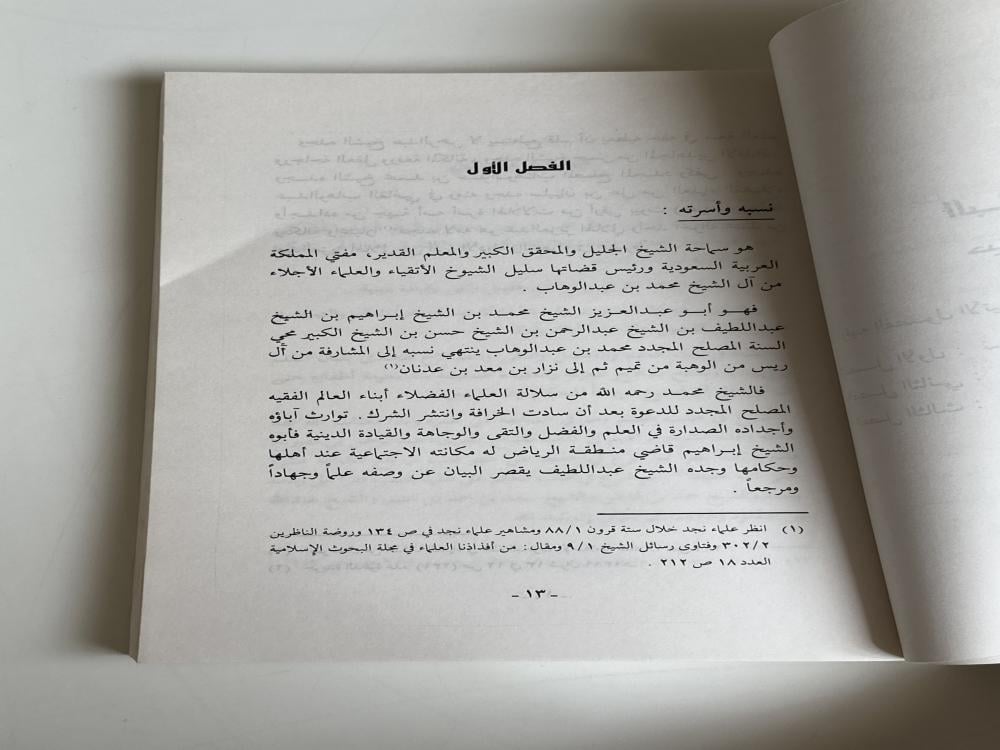 الفصل الأول
نسبه وأسرته :
هو سماحة الشيخ الجليل والمحقق الكبير والمعلم القدير، مفتي المملكة
العربية السعودية ورئيس قضاتها سليل الشيوخ الأتقياء والعلماء الأجلاء
من آل الشيخ محمد بن عبدالوهاب .
فهو أبو عبدالعزيز الشيخ محمد بن الشيخ إبراهيم بن الشيخ
عبداللطيف بن الشيخ عبدالرحمن بن الشيخ حسن بن الشيخ الكبير محي
السنة المصلح المجدد محمد بن عبدالوهاب ينتهي نسبه إلى المشارفة من آل
ريس من الوهبة من تميم ثم إلى نزار بن معد بن عدنان(١)
فالشيخ محمد رحمه الله من سلالة العلماء الفضلاء أبناء العالم الفقيه
المصلح المجدد للدعوة بعد أن سادت الخرافة وانتشر الشرك . توارث آباؤه
وأجداده الصدارة في العلم والفضل والتقى والوجاهة والقيادة الدينية فأبوه
الشيخ إبراهيم قاضي منطقة الرياض له مكانته الاجتماعية عند أهلها
وحكامها وجده الشيخ عبداللطيف يقصر البيان عن وصفه علماً وجهاداً
ومرجعاً .
(١) انظر علماء نجد خلال ستة قرون ٨٨/١ ومشاهير علماء نجد في ص ١٣٤ وروضة الناظرين
٣٠٢/٢ وفتاوي رسائل الشيخ ٩/١ ومقال : من أفذاذنا العلماء في مجلة البحوث الإسلامية
العدد ١٨ ص ٢١٢ .
- ١٣ -